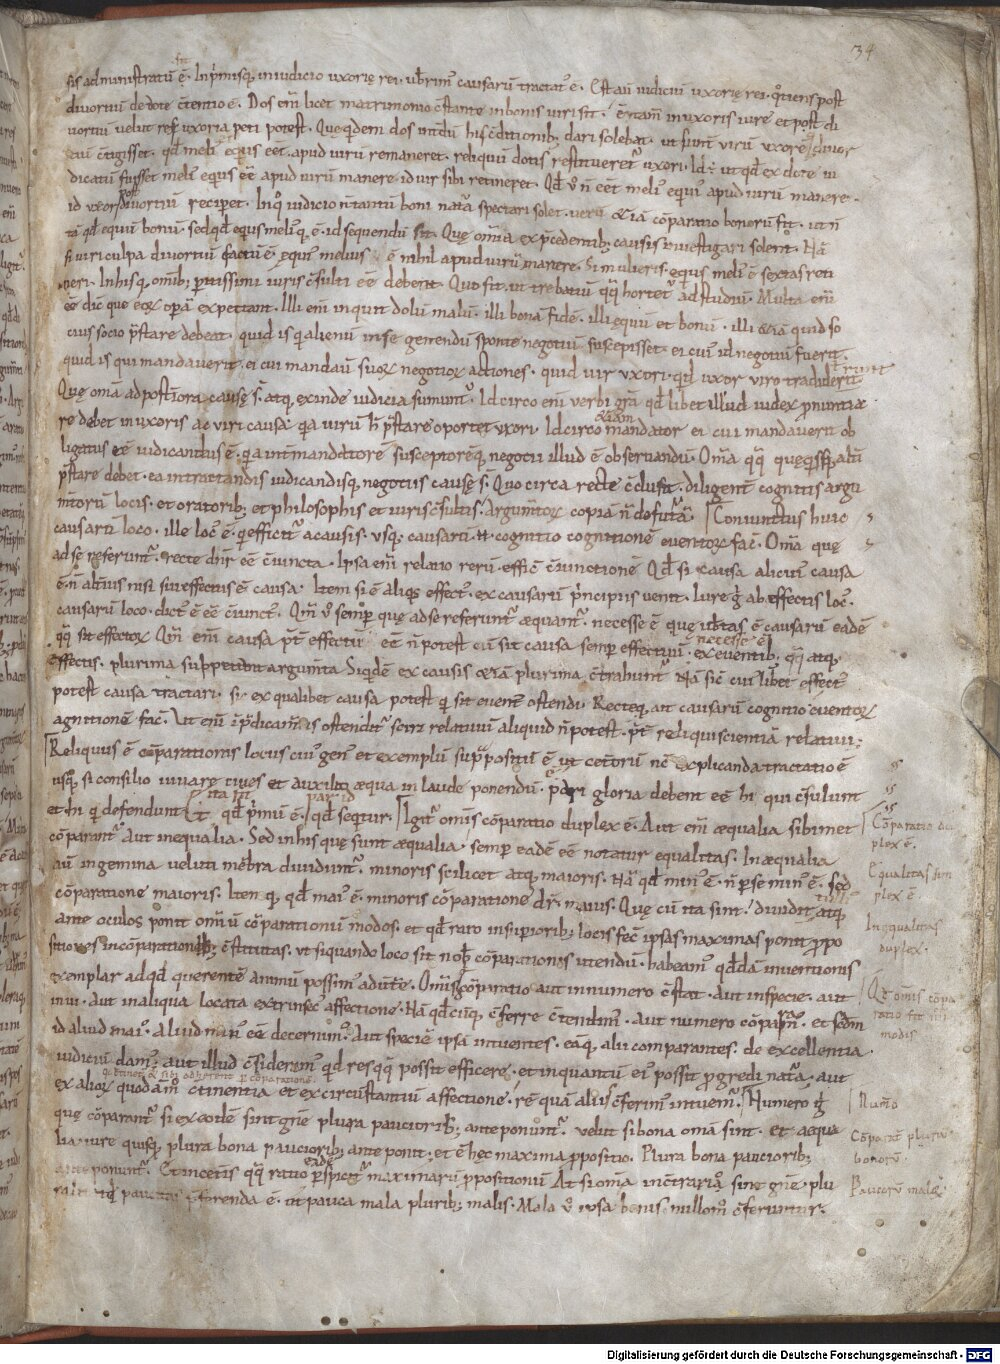 34
sis administratũ ẽ. Inp̃misq; iniudicio uxorię rei. ub̃rim̃ causarũ tractat' ẽ. Est aũ iudiciũ uxorię rei. quotiens post
diuortiũ de dote c̃tentio ẽ. Dos eñi licet matrimonio c̃stante inbonis uiri sit. ẽ tam̃ inuxoris iure et post di
uortiũ uelut res uxoria peti potest. Que qdem dos intdũ his c̃ditionib; dari solebat. ut si int̃ uirũ uxorẽq; diuor
tiũ c̃tigisset. qd̃ meli' equis eẽt. apud uirũ remaneret. reliquũ dotis restitueret̃ uxori. Id ẽ. ut qd̃ ex dote iu
dicatũ fuisset meli' equis eẽ apud uirũ manere. id uir sibi retineret. Qd̃ ũ ñ eẽt meli' equi' apud uirũ manere.
id uxor post diuortiũ reciperet. Inq̊ iudicio ñ tantũ boni nat̃a spectari solet. uerũ etiã cõparatio bonorũ fit. ut ñ
tã qd̃ equũ bonũ. sed qd̃ equis meli' q; ẽ. id sequendũ sit. Quę om̃ia ex p̃cedentib; causis inuestigari solent. Nã
si uiri culpa diuortiũ factũ ẽ. equi' melius ẽ nihil apud uirũ manere. Si mulieris. equis meli' ẽ sextas reti
neri. In his q; om̃ib; p̃itissimi iuris c̃sulti eẽ debent. Quo fit. ut trebatiũ qq̃ hortet̃ ad studiũ. Multa eñi
eẽ dic̃ que eor̃ oper̃a expectant. Illi eñi inquit dolũ malũ. illi bonã fidẽ. illi equũ et bonũ. illi etiã quid so
cius socio p̃stare debeat. quid is qi alienũ in se gerendũ sponte negotiũ suscepisset. ei cui' id negotiũ fuerit.
quid is qui mandauerit. ei cui mandatũ suor̃ negotior̃ actiones. quid uir uxori. qd uxor uiro tradiderit
Quę om̃a ad post̃iora causę s̃. atq; exinde iudicia sumunt̃. Idcirco eñi uerbi gr̃a qd̃ libet illud iudex p̃nuntia
re debet in uxoris ac uiri causa. qa uirũ h̃ p̃stare oportet uxori. Idcirco etiam mandator ei cui mandauerit ob
ligatus eẽ iudicandus ẽ. qa int̃ mandatorẽ susceptorẽq; negotii illud ẽ obseruandũ. Om̃a qq̃ quę qsq; alt̃i
p̃stare debet. ea intractandis iudicandisq; negotiis causę s̃. Quo circa recte c̃clusit. diligent̃ cognitis argu
m̃torũ locis. et oratorib; et philosophis et iuris c̃sultis. argum̃tor̃ copiã ñ defuturã. Coniunctus huic
causarũ loco. ille loc' ẽ. q efficit̃ a causis. usq; causarũ ñ cognitio cognitionẽ euentor̃ fac̃. Om̃a que
ad se referunt̃. recte dñr eẽ c̃iuncta. Ipsa eñi relatio rerũ. effic̃ c̃iunctionẽ. Qd̃ si causa alicui' causa
ẽ. ñ alt̃ius nisi sui effectus ẽ causa. Item si ẽ aliqs effect'. ex causarũ p̃ncipiis uenit. Iure g̃ ab effectis loc'.
causarũ loco. dict' ẽ eẽ c̃iunct'. Qm̃ ũ semp̃ quę ad se referunt̃ æquant̃. necesse ẽ que ub̃tas ẽ causarũ eadẽ
qq̃ sit effector̃. Qm̃ eñi causa p̃t̃ effectũ eẽ ñ potest. cũ sit causa semp̃ effectiui' necesse ẽ. ex euentib; qq̃ atq;
effectis. plurima suppetunt argum̃ta. Siqdẽ ex causis etiã plurima c̃trahunt̃. Nã sic̃ cui' libet effect'
potest causa tractari. sic ex qualibet causa potest q sit euent' ostendi. Recteq; ait causarũ cognitio euentor̃
agnitionẽ fac̃. Ut eñi ip̃dicam̃tis ostendit̃ sciri relatiuũ aliquid ñ potest. p̃t̃ reliqui scientiã relatiui:
Reliquus ẽ cõparationis locus cui' gen' et exemplũ supp̃positũ ẽ ut cet̃orũ nc̃ explicanda tractatio ẽ
usq; si consilio iuuare ciues et auxilio æqua in laude ponendũ. pari gloria debent eẽ hi qui c̃sulunt
et hi q defendunt. ẽ qd̃ p̃mũ ẽ. qd̃ seqtur. Igit̃ om̃is cõparatio duplex ẽ. Aut eñi æqualia sibimet
cõparant̃ aut inequalia. Sed in his quę sunt æqualia. semp̃ eadẽ eẽ notatur equalitas. Inæqualia
aũ in gemina ueluti mẽbra diuidunt̃. minoris scilicet atq; maioris. Nã qd̃ min' ẽ. ñ p̃ se min' ẽ. sed
cõparatione maioris. Item q; qd̃ mai' ẽ. minoris cõparatione dr̃. maius. Quę cũ ita sint. diuidit atq;
ante oculos ponit om̃iũ cõparationũ modos. et qd̃ raro insup̃iorib; locis fec̃. ipsas maximas ponit p̃po
sitiones incõparationib; c̃stitutas. ut siquando loco sit nob̃ cõparationis utendũ. habeam' qd̃dã inuentionis
exemplar ad qd̃ querentẽ animũ possim' aduert̃e. Om̃is g̃ cõparatio aut innumero c̃stat. aut inspecie. aut
inui. aut in aliqua locata extrinsec' affectione. Nã qd̃ cũq; c̃ferre c̃tendim'. aut numero cõparam'. et sed̃m
id aliud mai'. aliud min' eẽ decernim'. Aut speciẽ ipsã intuentes. eaq; alii comparantes. de excellentia
iudiciũ dam'. aut illud c̃siderem' qd res qq̃ possit efficere. et inquantũ ei' possit p̃gredi nat̃a. aut
ex alior̃ quodam̃ c̃tinentia et excircũstantiũ affectione. rẽ quã aliis c̃ferim' intuem̃. Numero g̃
quę cõparant̃ si exeodẽ sint gñe plura paucitorib; anteponunt̃. uelut si bona om̃ia sint. et aequa
lia iure quisq; plura bona paucioribus; ante ponit; et ẽ hęc maxima p̃positio. Plura bona paucioribus;
ante ponunt̃. Et incetis qq̃ ratio eadẽ p̃spicit̃ maximarũ p̃positionũ. At si om̃ia inc̃trariã sint gñe. plu
ra p̃ferenda ẽ. ut pauca mala plurib; malis. Mala ũ ipsa bonis nullom̃ c̃feruntur.
Cõparatio du
plex ẽ.
Equalitas sim
plex ẽ.
Inequalitas
duplex.
Qd̃ om̃is cõpa
ratio fit IIII
modis
Num̃o
Cõparat̃ plura
bonorũ.
Paucorũ malor̃
Digitalisierung gefördert durch die Deutsche Forschungsgemeinschaft - DFG